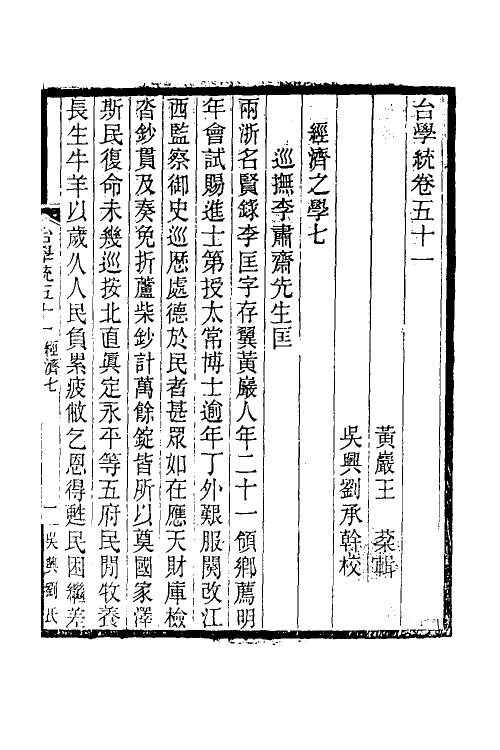 台學統卷五十一
黃巖王　棻輯
吳興劉承幹校
經濟之學七
巡撫李肅齋先生匡
兩浙名賢錄李匡字存翼黃巖人年二十一領鄉薦明
年會試賜進士第授太常博士逾年丁外艱服闋改江
西監察御史巡歷處德於民者甚眾如在應天財庫檢
沓鈔貫及奏免折蘆柴鈔計萬餘錠皆所以奠國家澤
斯民復命未幾巡按北直眞定永平等五府民閒牧養
長生牛羊以歲久人民負累疲敝乞恩得甦民困繼差
台學統五十一經濟七
一
吳興劉氏